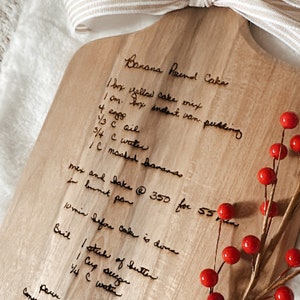 Banana Pound Cake
1 box yellow cake mix
1 sm. box instant van pudding
4 eggs
1/3 C oil
3/4 C water
1 C mashed banana
mix and bake @ 350 for 55 min
in bundt pan
10 min before cake is done
Boil
1 stick of butter
1 Cup sugar
1/4 C water
Pour